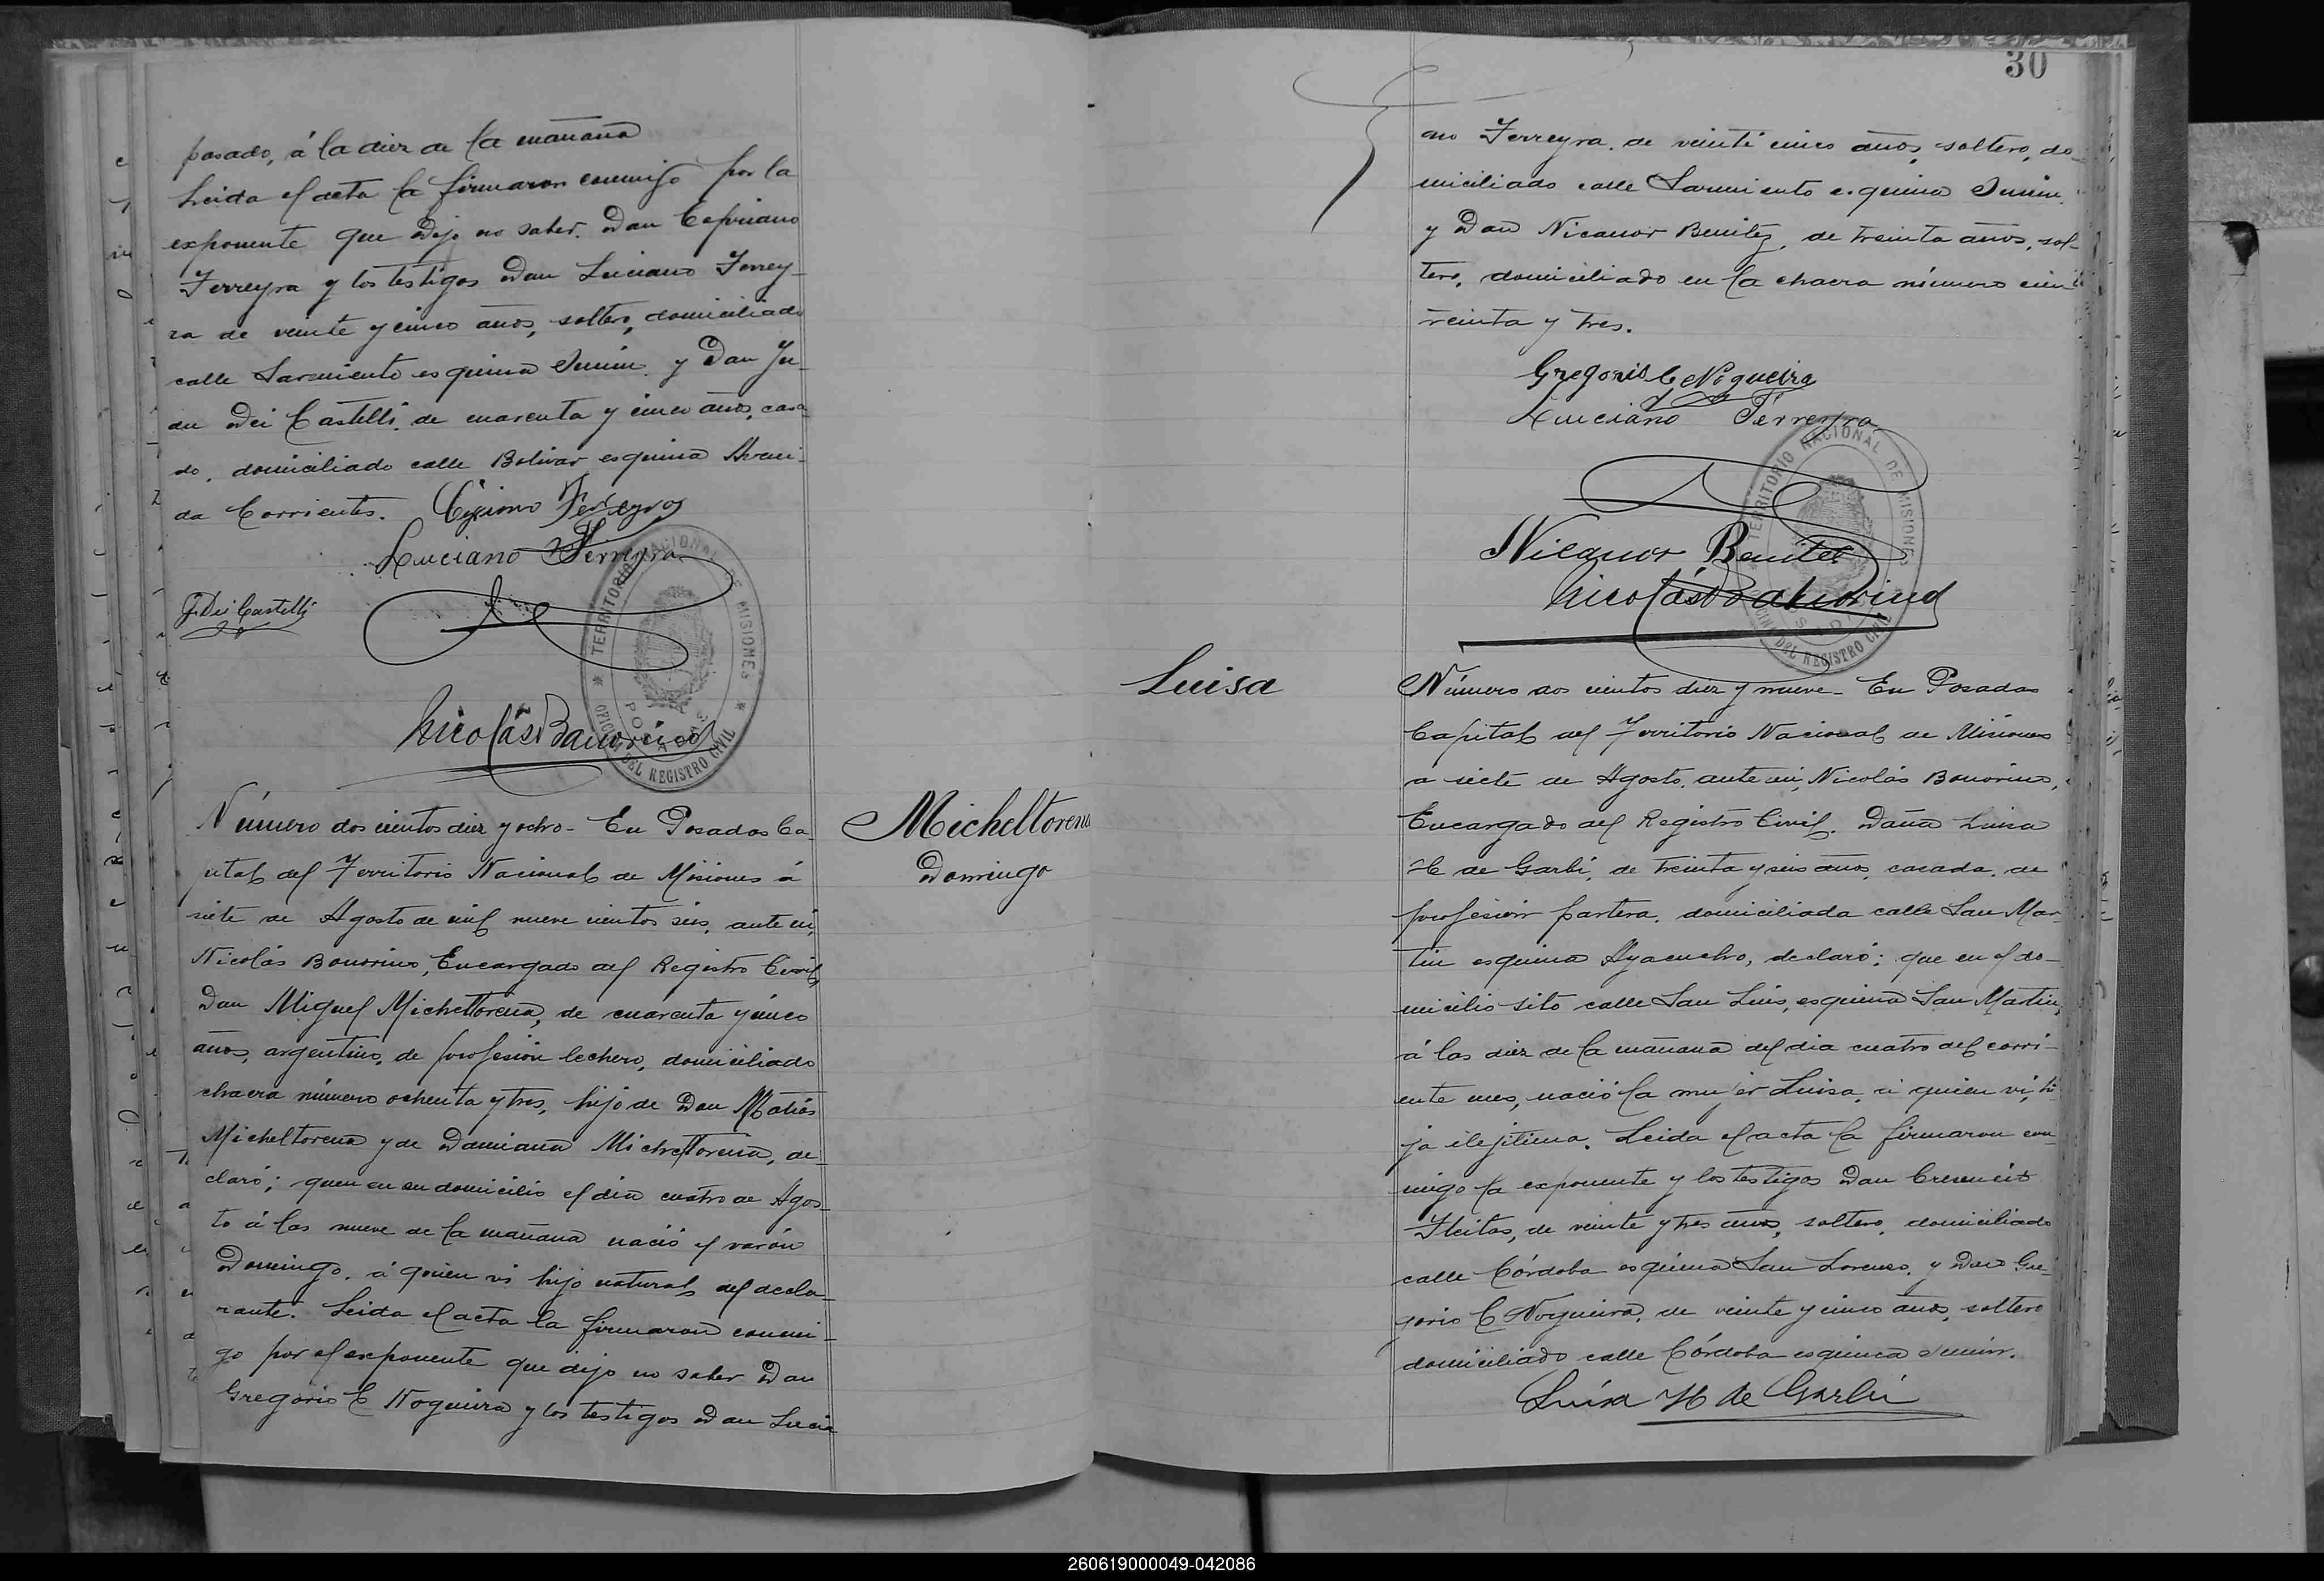 pasado, á la diez de la mañana
Leida el acta la firmaron conmigo por la
exponente que dijo no saber. Don Cipriano
Ferreyra y los testigos Don Luciano Ferrey-
ra de veinte y cinco años, soltero, domiciliado
calle Sarmiento esquina Junin y Don Ju-
an Dei Castelli de cuarenta y cinco años, casa-
do, domiciliado calle Bolivar esquina Aveni-
da Corrientes. Cipriano Ferreyra
Luciano Ferreyra
J. Dei Castelli
TERRITORIO NACIONAL DE MISIONES
POSADAS
OFICINA DEL REGISTRO CIVIL
Nicolás Bonorino
Micheltorena
Domingo
Número dos cientos diez y ocho - En Posadas Ca-
pital del Territorio Nacional de Misiones á
siete de Agosto de mil nueve cientos seis, ante mi,
Nicolás Bonorino, Encargado del Registro Civil,
Don Miguel Micheltorena, de cuarenta y cinco
años, argentino, de profesión lechero, domiciliado
chacra número ochenta y tres, hijo de Don Matias
Micheltorena y de Damiana Micheltorena, de-
claró; quen en su domicilio el dia cuatro de Agos-
to á las nueve de la mañana nació el varón
Domingo, á quien vi hijo natural del decla-
rante. Leida el acta la firmaron conmi-
go por el exponente que dijo no saber Don
Gregorio C Nogueira y los testigos Don Lucia
30
no Ferreyra, de veinti cinco años, soltero, do-
miciliado calle Sarmiento esquina Junin
y Don Nicanor Benitez, de treinta años, sol-
tero, domiciliado en la chacra número cien
treinta y tres.
Gregorio C Nogueira
Luciano Ferreyra
TERRITORIO NACIONAL DE MISIONES
POSADAS
OFICINA DEL REGISTRO CIVIL
Nicanor Benitez
Nicolás Bonorino
Luisa
Número dos cientos diez y nueve - En Posadas
Capital del Territorio Nacional de Misiones
a siete de Agosto, ante mi, Nicolás Bonorino,
Encargado del Registro Civil. Doña Luisa
H de Garbi, de treinta y seis años, casada, de
profesión partera, domiciliada calle San Mar-
tin esquina Ayacucho, declaró; que en el do-
micilio sito calle San Luis, esquina San Martin,
á las diez de la mañana del dia cuatro del corri-
ente mes, nació la mujer Luisa, á quien vi, hi-
ja ilejitima. Leida el acta la firmaron con-
migo la exponente y los testigos Don Cresencio
Fleitas, de veinte y tres años, soltero, domiciliado
calle Córdoba esquina San Lorenzo, y Don Gre-
gorio C Nogueira, de veinte y cinco años, soltero
domiciliado calle Córdoba esquina Junin.
Luisa H de Garbi
260619000049-042086